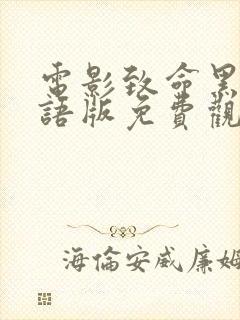 電影致命黑
語版免費觀
海倫安威廉姆